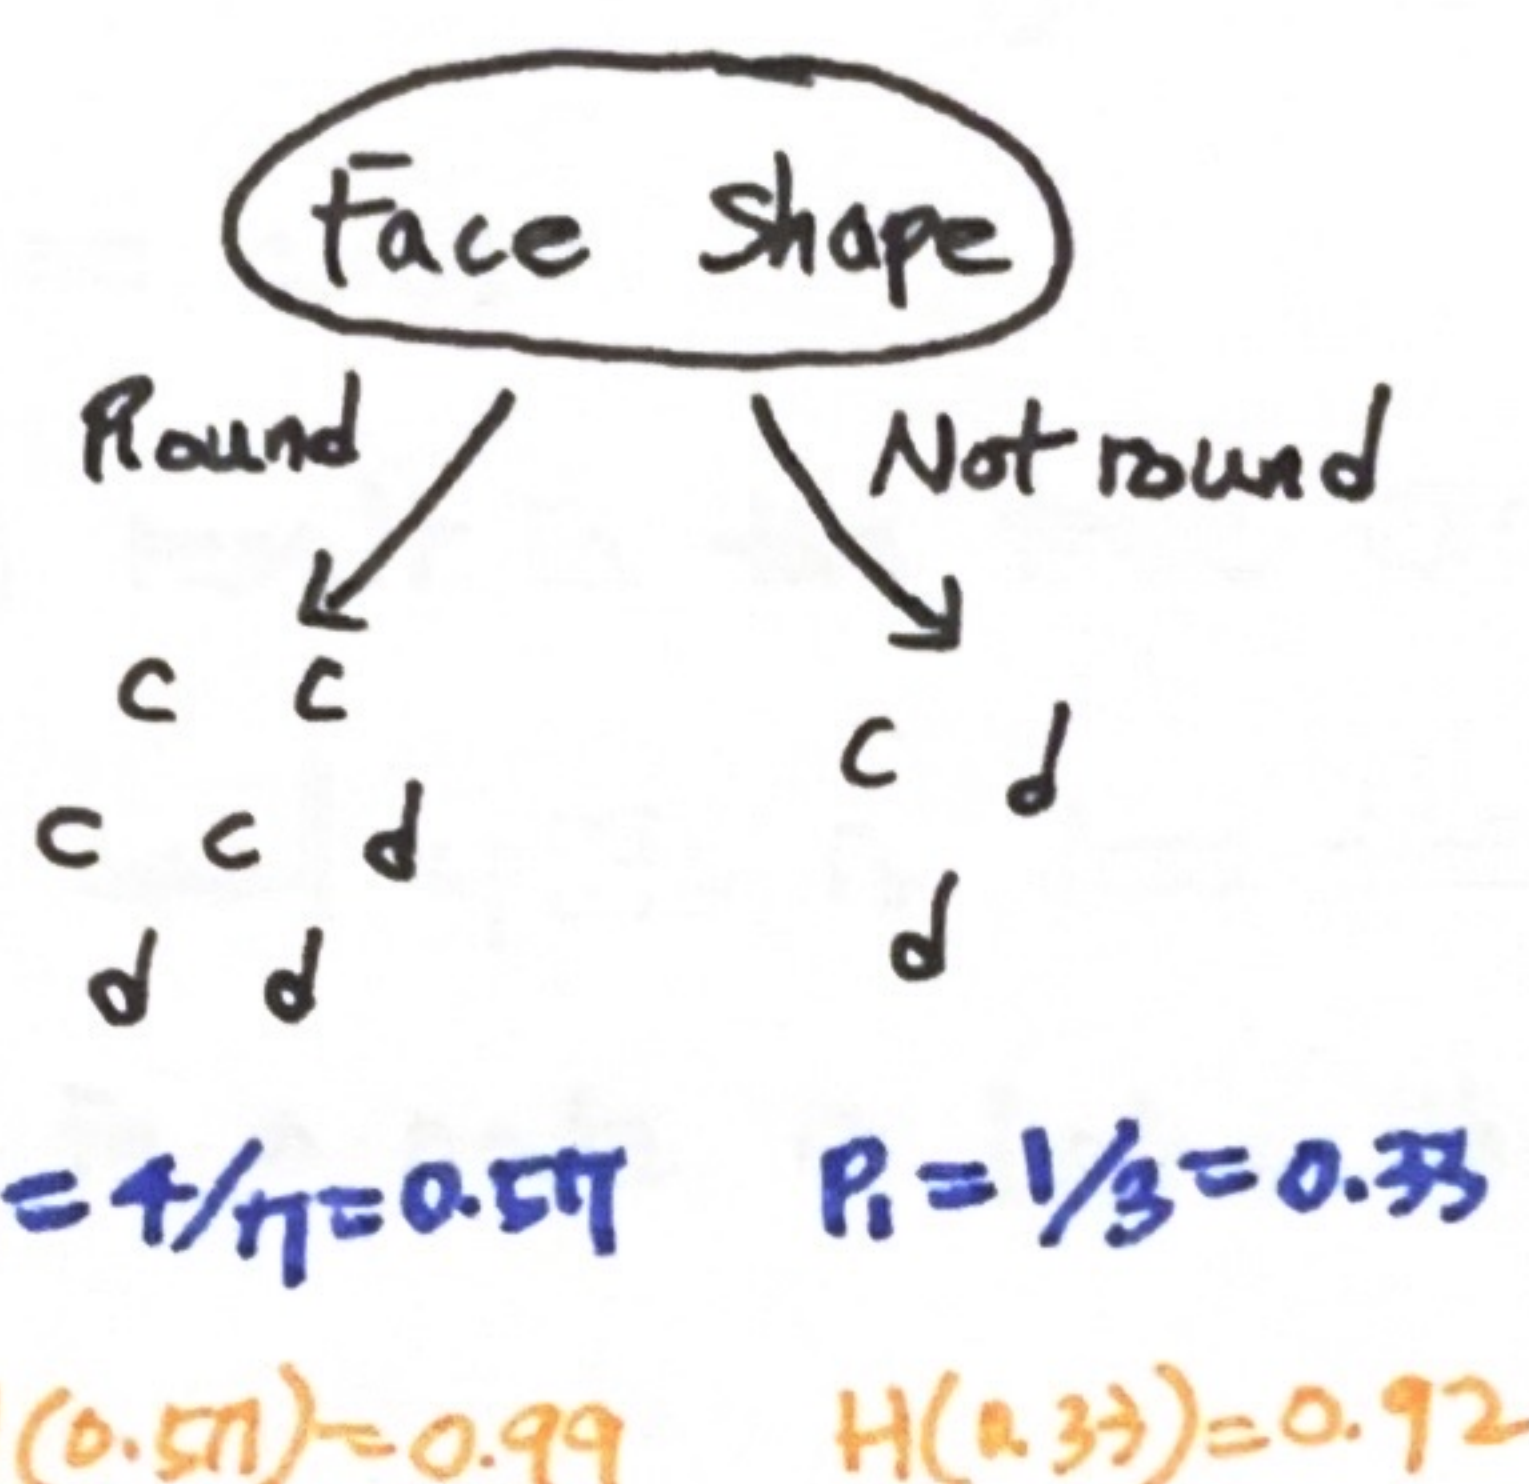 Face Shape
Round Not round
c c
c d
c c d
d
d d
= 4/7 = 0.57 P₁ = 1/3 = 0.33
(0.57) = 0.99 H(0.33) = 0.92